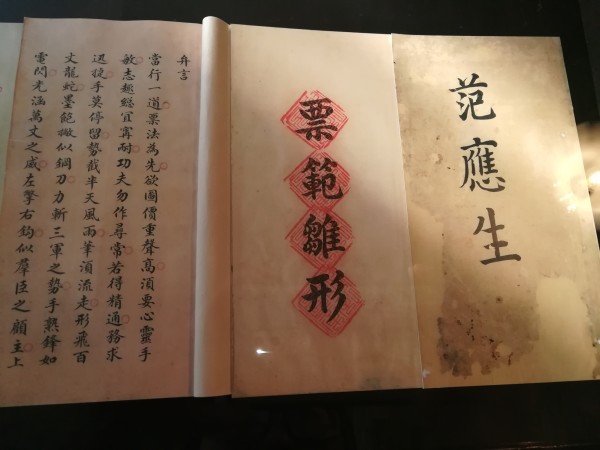 范應生
票範雛形
弁言
當行一道票法為先欲圖價重聲高須要心靈手
敏志趣總宜寧耐功夫勿作尋常若得精通務求
迅捷手莫停留勢截半天風雨筆須流走形飛百
丈龍蛇墨飽撇似鋼刀力斬三軍之勢手熟鋒如
電閃光涵萬丈之威左擎右鈎似羣臣之顧主上